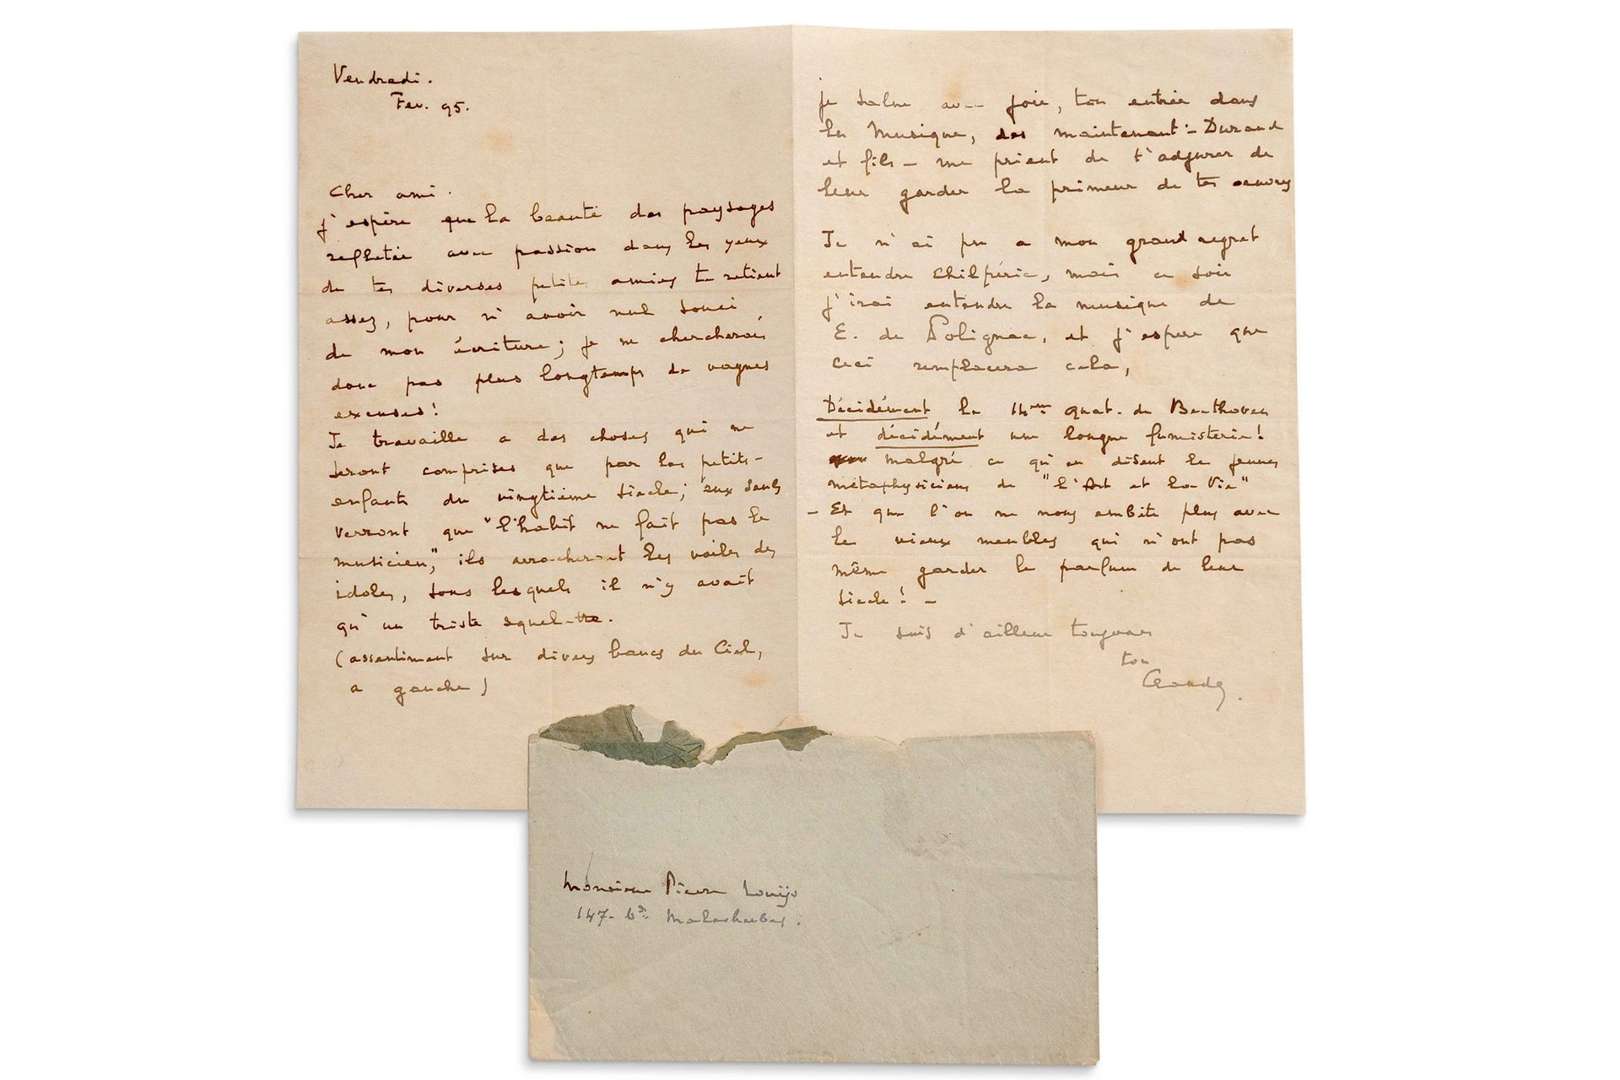 Vendredi.
Fev. 95.
Cher ami.
j'espère que la beauté des paysages
reflétée avec passion dans les yeux
de tes diverses petites amies te retient
assez, pour n'avoir nul souci
de mon écriture; je ne chercherai
donc pas plus longtemps de vagues
excuses!
Je travaille a des choses qui ne
seront comprises que par les petits-
enfants du vingtième siècle; eux seuls
verront que "l'habit ne fait pas le
musicien", ils arracheront les voiles des
idoles, sous lesquels il n'y avait
qu'un triste squelette.
(assentiment sur divers bancs du Ciel,
a gauche)
je salue avec joie, ton entrée dans
la Musique, des maintenant :- Durand
et fils - me prient de t'adjurer de
leur garder la primeur de tes oeuvres
Je n'ai pu a mon grand regret
entendre Chilpéric, mais ce soir
j'irai entendre la musique de
E. de Polignac, et j'espere que
ceci remplacera cela,
Décidément le 14me quat. de Beethoven
et décidément une longue fumisterie!
malgré ce qu'en disent les jeunes
métaphysiciens de "l'Art et la Vie"
- Et que l'on ne nous embête plus avec
les vieux meubles qui n'ont pas
même garder le parfum de leur
siecle! -
Je suis d'ailleurs toujours
ton
Claude.
Monsieur Pierre Louÿs
147- bd. Malesherbes.